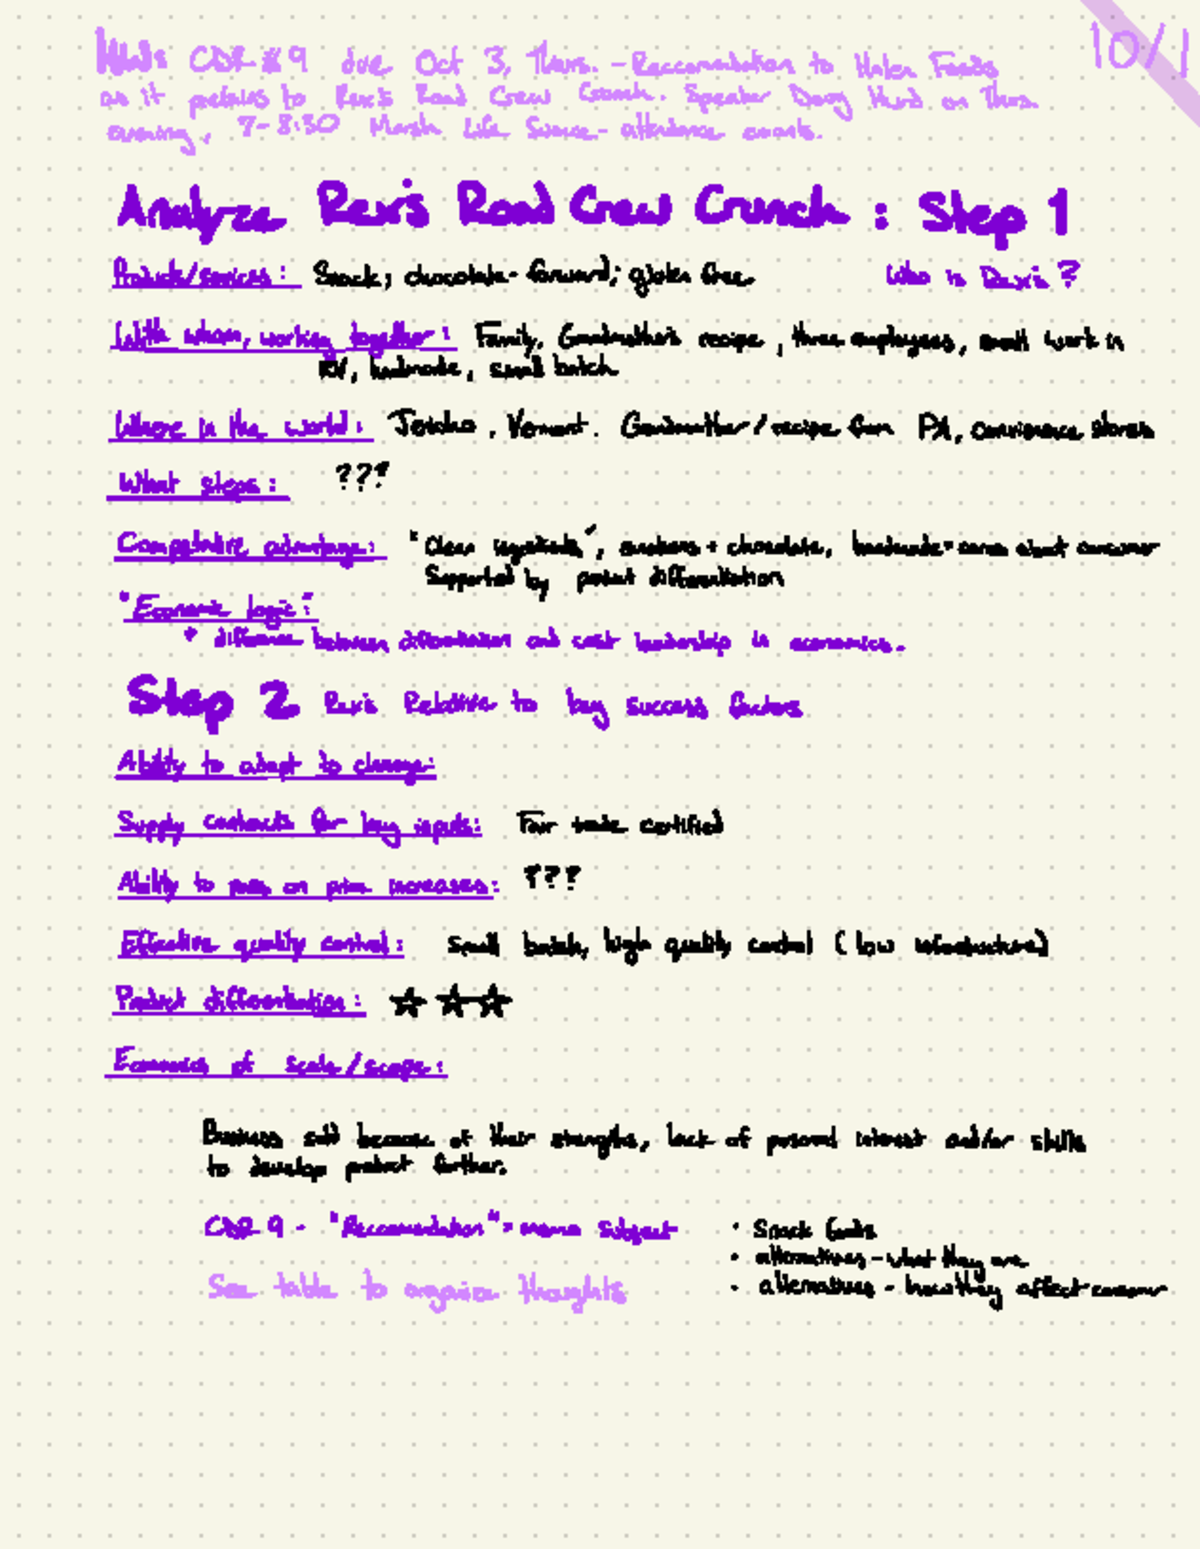 10/1
HW: CDR #9 due Oct 3, Thurs. - Reccomendation to Halen Foods
as it pertains to Rex's Road Crew Crunch. Speaker Doug Hurd on Thurs.
evening, 7-8:30 Marsh Life Science - attendance counts.
Analyze Rex's Road Crew Crunch: Step 1
Products/services: Snack; chocolate-forward; gluten free
Who is Rex's?
With whom, working together: Family, Grandmother's recipe, three employees, small work in
RV, handmade, small batch
Where in the world: Jericho, Vermont. Grandmother/recipe from PA, convienence stores
What steps: ???
Competative advantage: "Clean ingredients", + chocolate, handmade = cares about consumer
Supported by product differentiation
"Economic logic":
* difference between differentiation and cost leadership is economics.
Step 2 Rex's Relative to key success factors
Ability to adapt to change:
Supply contracts for key inputs: Fair trade certified
Ability to pass on price increases: ???
Effective quality control: Small batch, high quality control (low infrastructure)
Product differentiation: ☆☆☆
Economics of scale/scope:
Business sold because of their strengths, lack of personal interest and/or skills
to develop product further.
CDR 9 - "Reccomendation" = memo subject
• Snack foods
• alternatives - what they are
See table to organize thoughts
• alternatives - how they affect consumer